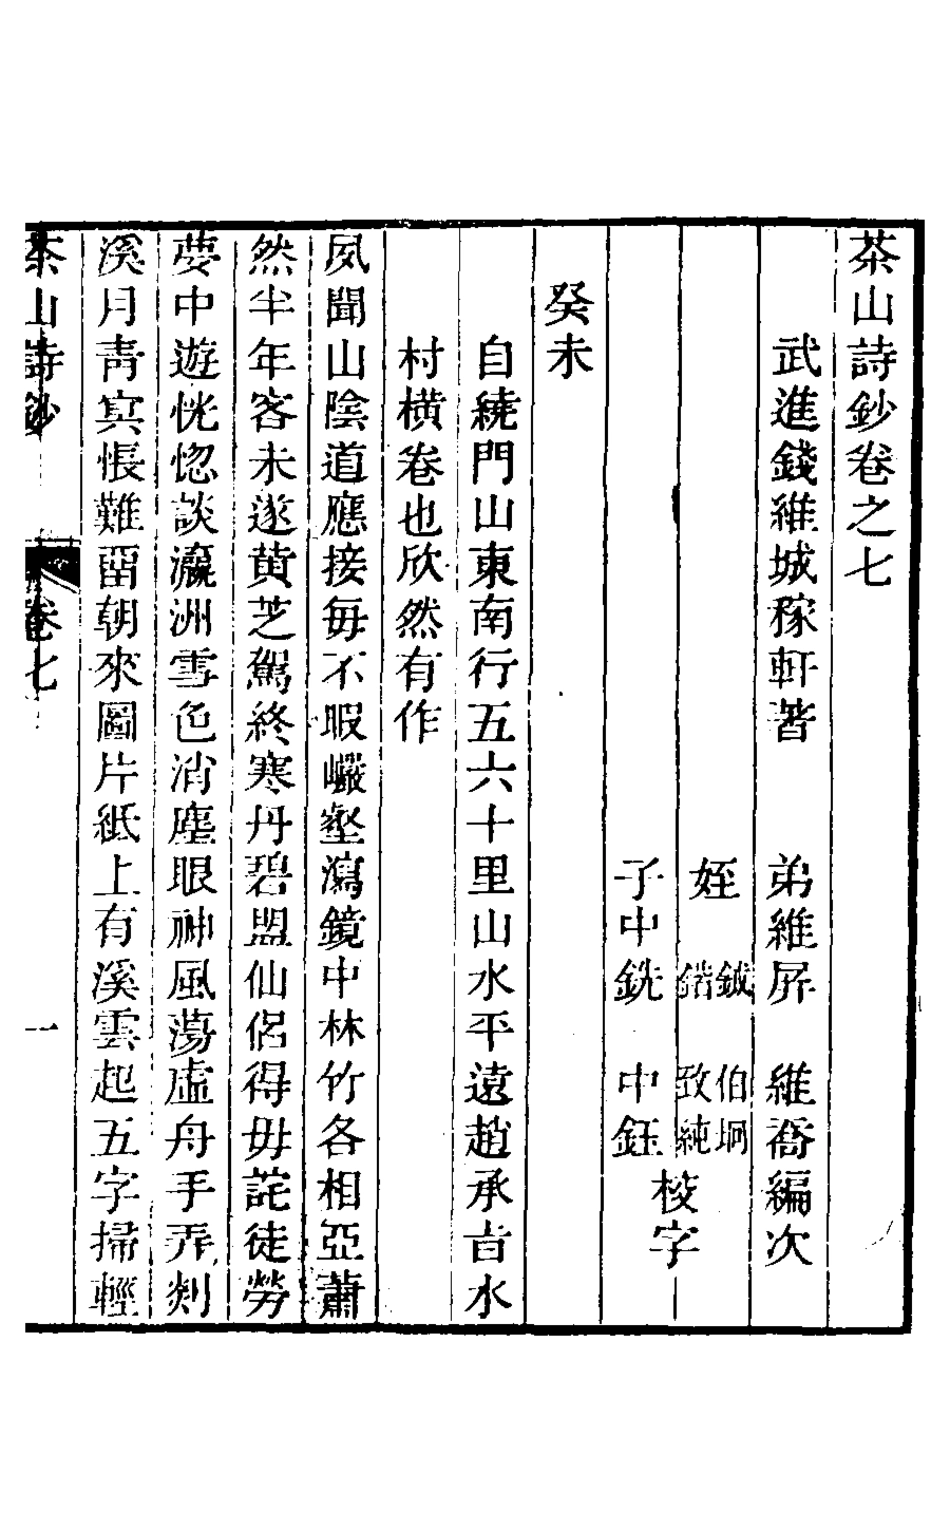 茶山詩鈔卷之七
武進錢維城稼軒著　弟維屏　維喬編次
姪　鉞　伯坰
鍇　致純
子中銑　中鈺　校字
癸未
自繞門山東南行五六十里山水平遠趙承旨水
村橫卷也欣然有作
夙聞山陰道應接每不暇巗壑瀉鏡中林竹各相亞蕭
然半年客未遂黃芝駕終寒丹碧盟仙侶得毋詫徒勞
夢中遊恍惚談瀛洲雪色消塵眼神風蕩虛舟手弄剡
溪月靑冥悵難畱朝來圖片紙上有溪雲起五字掃輕
茶山詩鈔　卷七　一